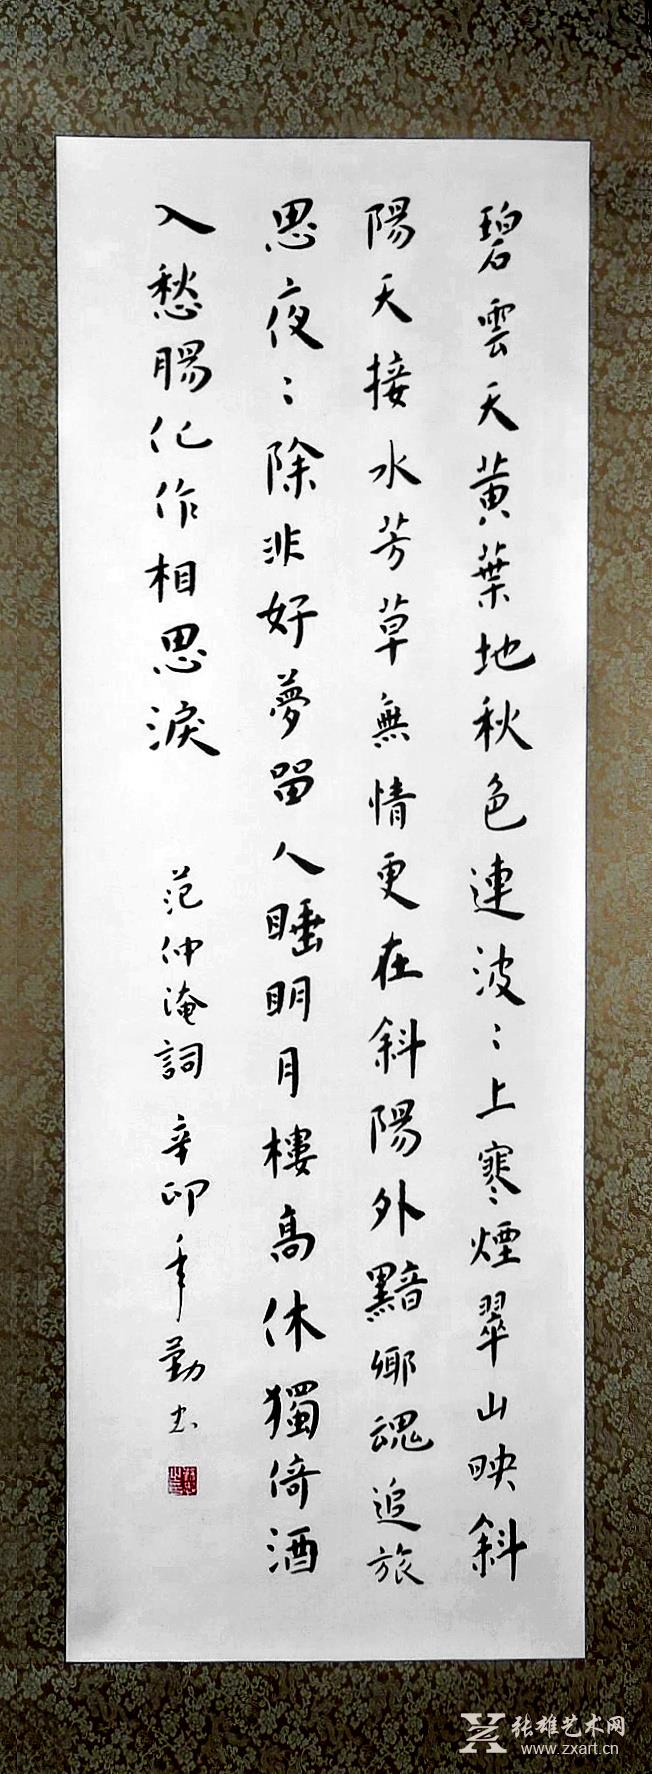 碧雲天黄葉地秋色連波〻上寒煙翠山映斜
陽天接水芳草無情更在斜陽外黯鄉魂追旅
思夜〻除非好夢留人睡明月樓高休獨倚酒
入愁腸化作相思淚
范仲淹詞 辛卯年勤書
张雄艺术网
www.zxart.cn